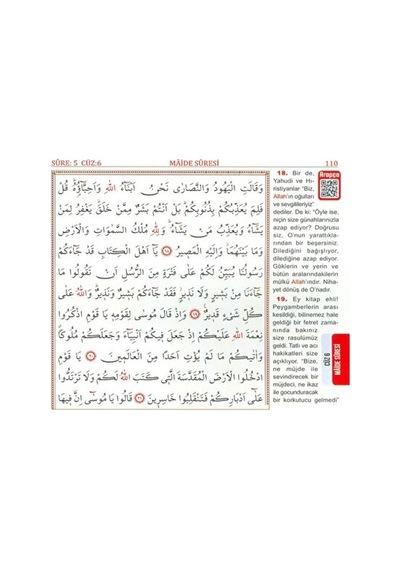 SÛRE: 5 CÜZ:6
MÂİDE SÛRESİ
110
وَقَالَتِ الْيَهُودُ وَالنَّصَارٰى نَحْنُ اَبْنَٓاءُ اللّٰهِ وَاَحِبَّٓاؤُ۬هُۜ قُلْ
فَلِمَ يُعَذِّبُكُمْ بِذُنُوبِكُمْۜ بَلْ اَنْتُمْ بَشَرٌ مِمَّنْ خَلَقَۜ يَغْفِرُ لِمَنْ
يَشَٓاءُ وَيُعَذِّبُ مَنْ يَشَٓاءُۜ وَلِلّٰهِ مُلْكُ السَّمٰوَاتِ وَالْاَرْضِ
وَمَا بَيْنَهُمَاۘ وَاِلَيْهِ الْمَصِيرُ ﴿١٨﴾ يَٓا اَهْلَ الْكِتَابِ قَدْ جَٓاءَكُمْ
رَسُولُنَا يُبَيِّنُ لَكُمْ عَلٰى فَتْرَةٍ مِنَ الرُّسُلِ اَنْ تَقُولُوا مَا
جَٓاءَنَا مِنْ بَشِيرٍ وَلَا نَذِيرٍۘ فَقَدْ جَٓاءَكُمْ بَشِيرٌ وَنَذِيرٌۜ وَاللّٰهُ عَلٰى
كُلِّ شَيْءٍ قَدِيرٌ۟ ﴿١٩﴾ وَاِذْ قَالَ مُوسٰى لِقَوْمِهٖ يَا قَوْمِ اذْكُرُوا
نِعْمَةَ اللّٰهِ عَلَيْكُمْ اِذْ جَعَلَ فٖيكُمْ اَنْبِيَٓاءَ وَجَعَلَكُمْ مُلُوكًاۗ
وَاٰتٰيكُمْ مَا لَمْ يُؤْتِ اَحَدًا مِنَ الْعَالَمٖينَ ﴿٢٠﴾ يَا قَوْمِ
ادْخُلُوا الْاَرْضَ الْمُقَدَّسَةَ الَّتٖي كَتَبَ اللّٰهُ لَكُمْ وَلَا تَرْتَدُّوا
عَلٰٓى اَدْبَارِكُمْ فَتَنْقَلِبُوا خَاسِرٖينَ ﴿٢١﴾ قَالُوا يَا مُوسٰٓى اِنَّ فٖيهَا
Arapça
18. Bir de,
Yahudi ve Hı-
ristiyanlar "Biz,
Allah'ın oğulları
ve sevgilileriyiz"
dediler. De ki: "Öyle ise,
niçin size günahlarınızla
azap ediyor? Doğrusu
siz, O'nun yarattıkla-
rından bir beşersiniz.
Dilediğini bağışlıyor,
dilediğine azap ediyor.
Göklerin ve yerin ve
bütün aralarındakilerin
mülkü Allah'ındır. Niha-
yet dönüş de O'nadır.
19. Ey kitap ehli!
Peygamberlerin arası
kesildiği, bilinemez hale
geldiği bir fetret zama-
nında bakınız
size rasulümüz
geldi. Tatlı ve acı
hakikatleri size
açıklıyor. "Bize,
ne müjde ile
sevindirecek bir
müjdeci, ne ikaz
ile gocunduracak
bir korkutucu gelmedi"
CÜZ 6
MÂİDE SÛRESİ